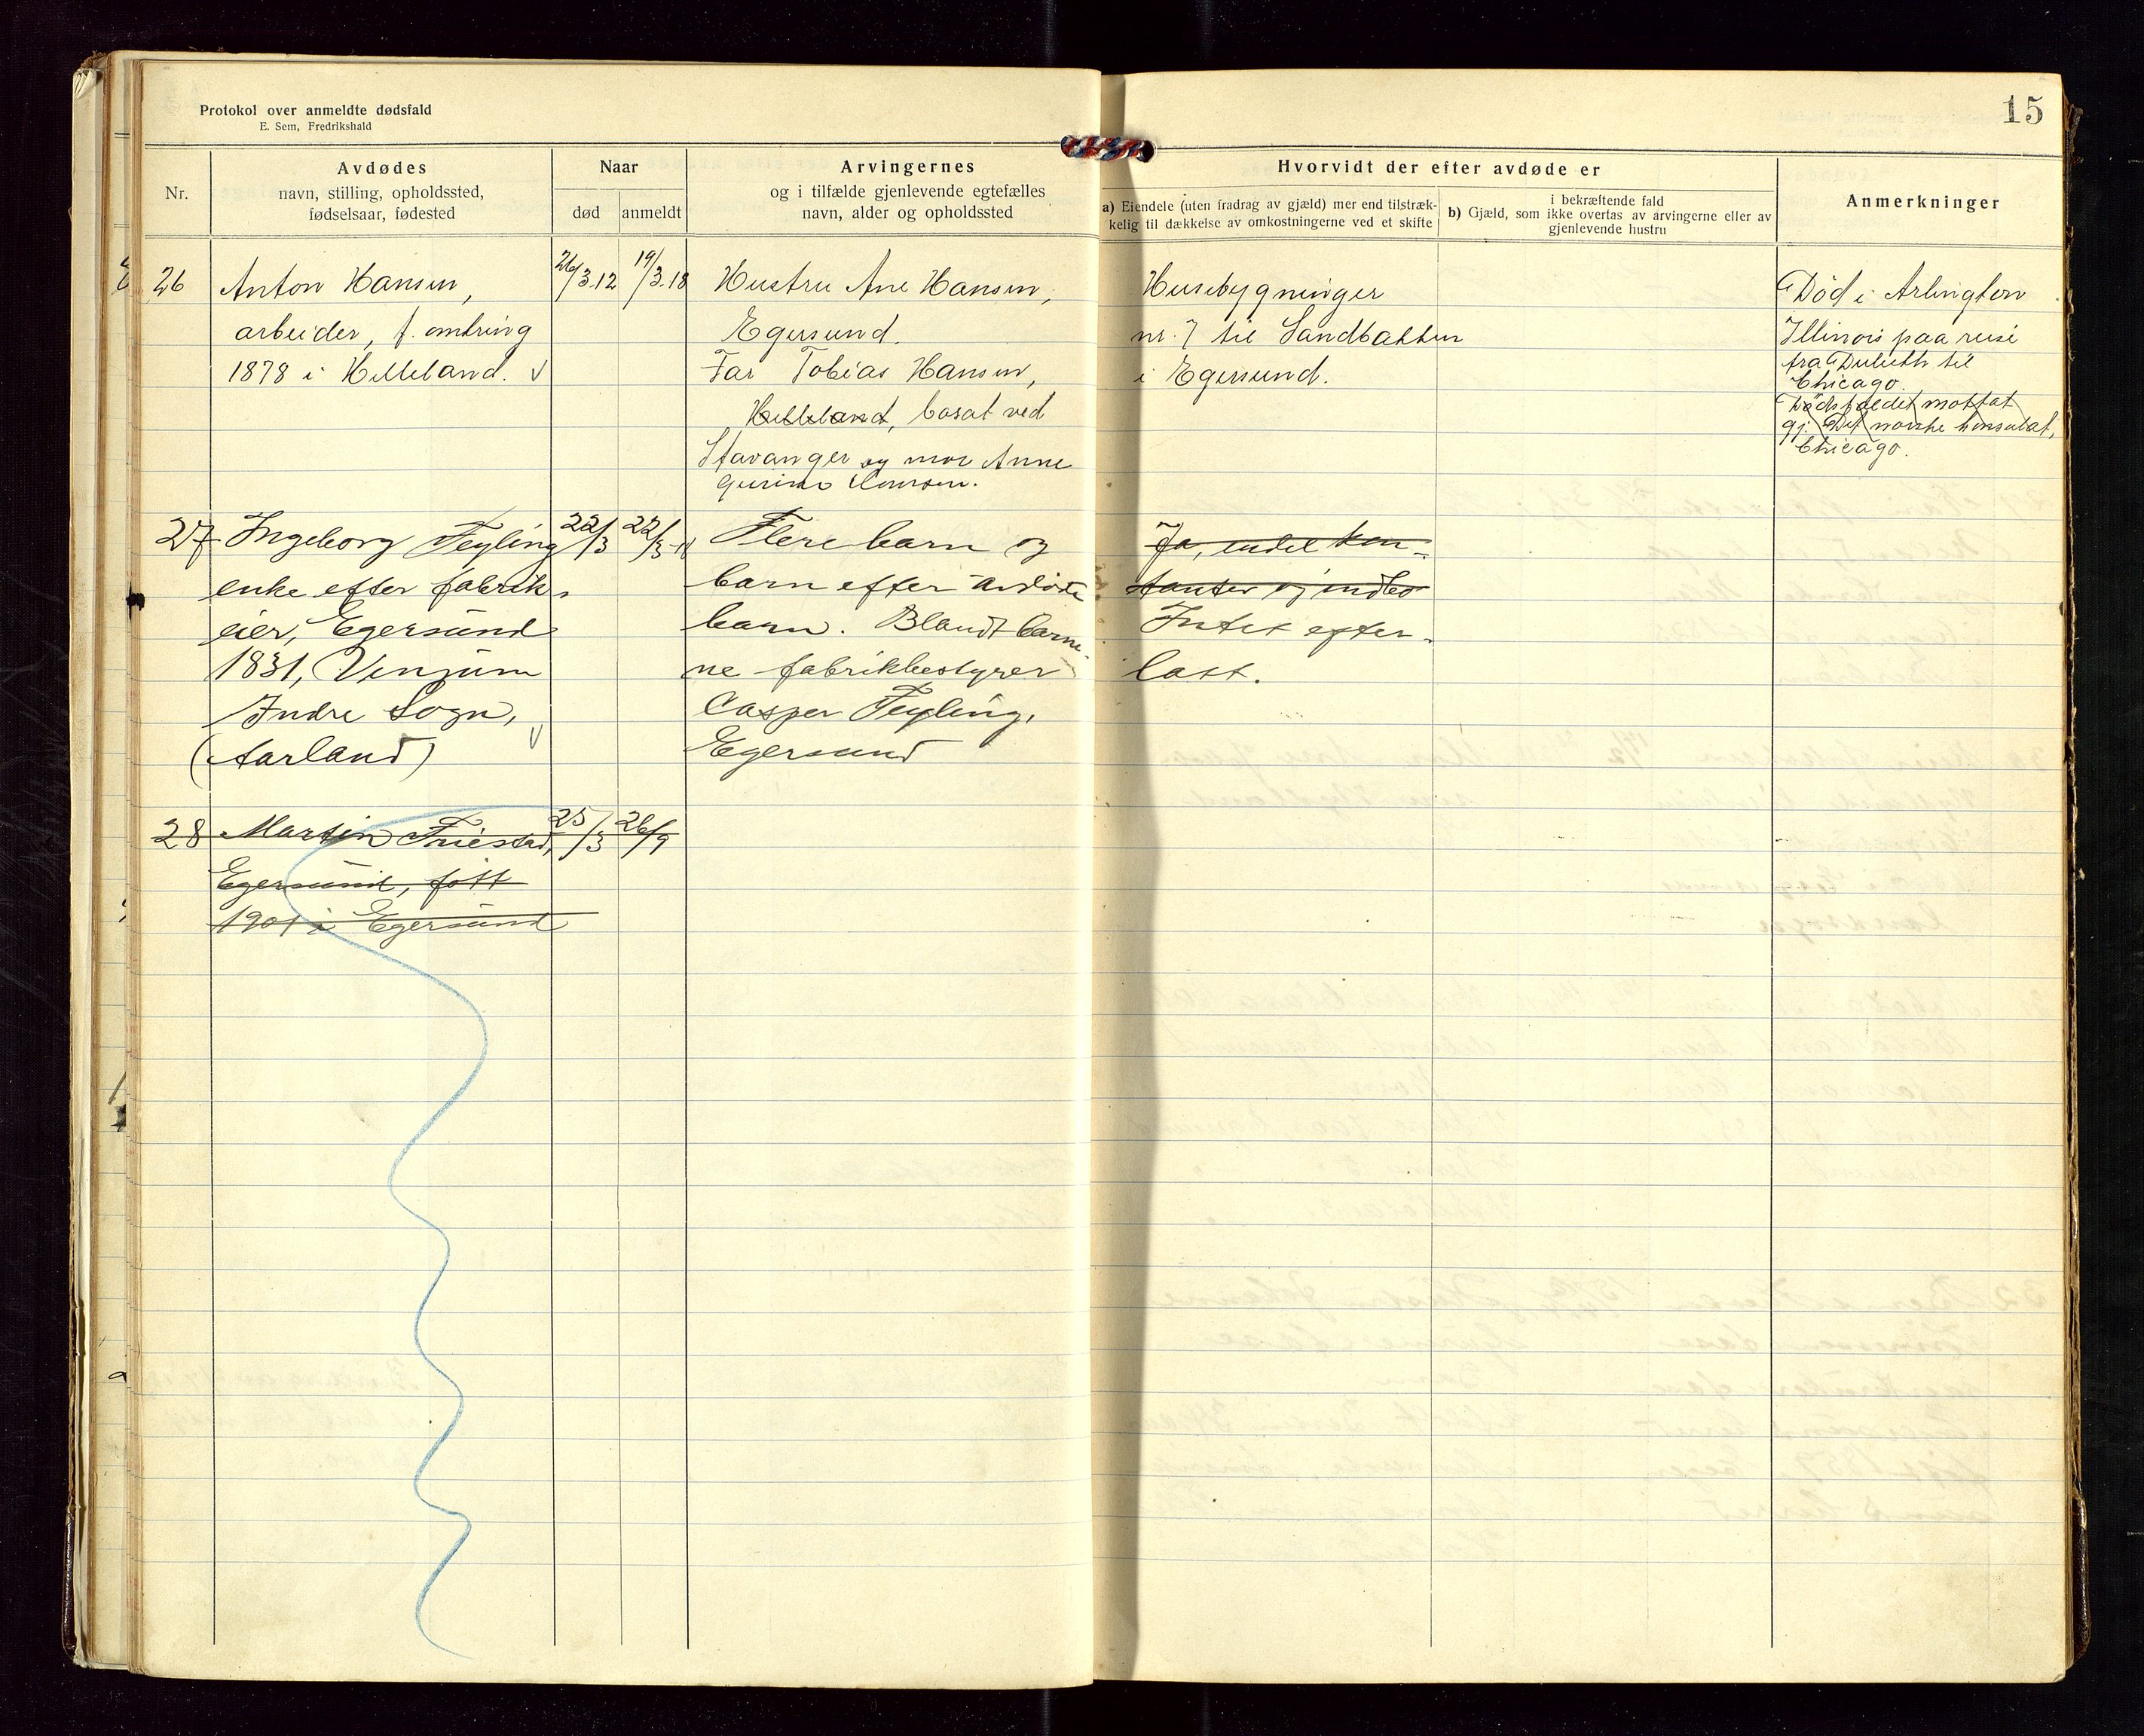 Protokol over anmeldte dødsfald
E. Sem, Fredrikshald
15
Nr.
Avdødes
navn, stilling, opholdssted,
fødselsaar, fødested
Naar
død
anmeldt
Arvingernes
og i tilfælde gjenlevende egtefælles
navn, alder og opholdssted
Hvorvidt der efter avdøde er
a) Eiendele (uten fradrag av gjæld) mer end tilstræk-
kelig til dækkelse av omkostningerne ved et skifte
i bekræftende fald
b) Gjæld, som ikke overtas av arvingerne eller av
gjenlevende hustru
Anmerkninger
26
Anton Hansen,
arbeider, f. omkring
1878 i Helleland.
26/3.12
19/3.18
Hustru Ane Hansen,
Egersund.
Far Tobias Hansen,
Helleland, bosat ved
Stavanger og mor Anne
Gurine Hansen.
Husebygninger
nr. 7 til Sandbakken
i Egersund.
Død i Arlington
Illinois paa reise
fra Duluth til
Chicago.
Dødsfaldet mottat
gj. Det norske konsulat,
Chicago.
27
Ingeborg Feyling
enke efter fabrik-
eier, Egersund
1831, Vinjum
Indre Sogn,
(Aarland)
22/3
22/3-18
Flere barn og
barn efter avdøde
barn. Blandt barne-
ne fabrikbestyrer
Casper Feyling,
Egersund
Ja, endel kon-
tanter og indbo
Intet efter-
latt.
28
Martin Friestad,
Egersund, født
1901 i Egersund
25/3
26/9